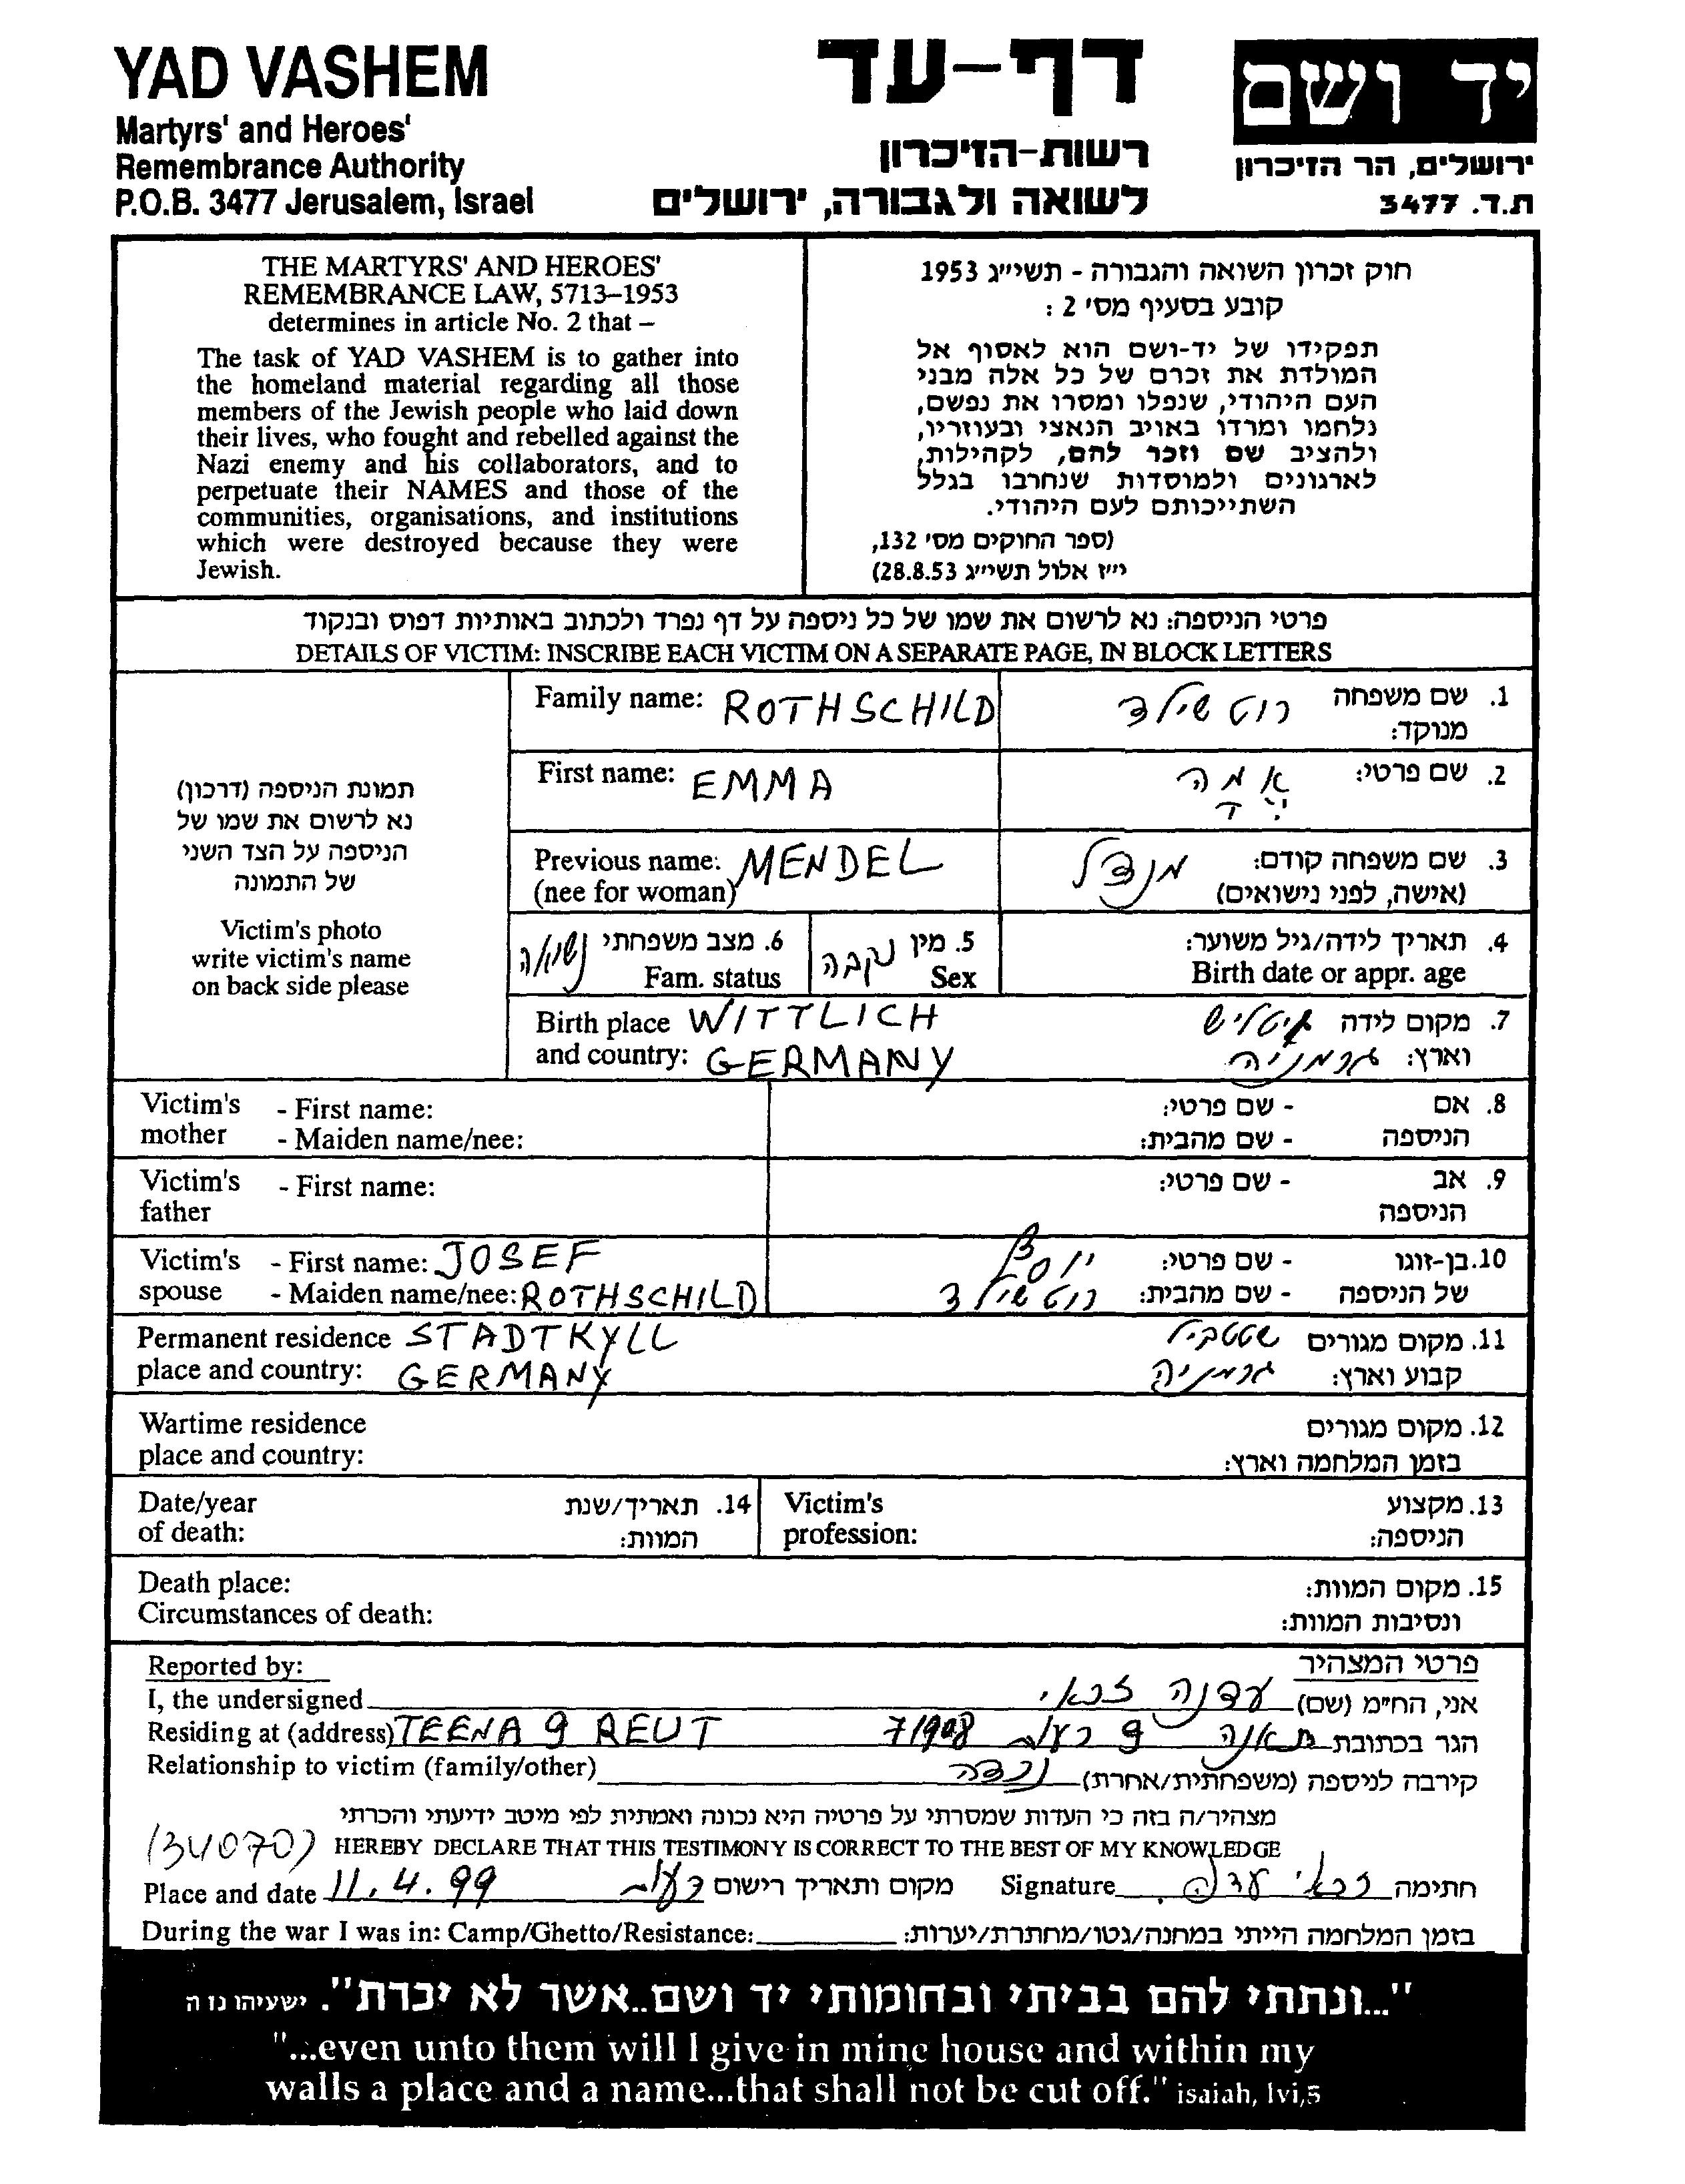 YAD VASHEM
Martyrs' and Heroes'
Remembrance Authority
P.O.B. 3477 Jerusalem, Israel
דף-עד
רשות-הזיכרון
לשואה ולגבורה, ירושלים
יד ושם
ירושלים, הר הזיכרון
ת.ד. 3477
THE MARTYRS' AND HEROES'
REMEMBRANCE LAW, 5713–1953
determines in article No. 2 that –
The task of YAD VASHEM is to gather into
the homeland material regarding all those
members of the Jewish people who laid down
their lives, who fought and rebelled against the
Nazi enemy and his collaborators, and to
perpetuate their NAMES and those of the
communities, organisations, and institutions
which were destroyed because they were
Jewish.
חוק זכרון השואה והגבורה - תשי"ג 1953
קובע בסעיף מס' 2 :
תפקידו של יד-ושם הוא לאסוף אל
המולדת את זכרם של כל אלה מבני
העם היהודי, שנפלו ומסרו את נפשם,
נלחמו ומרדו באויב הנאצי ובעוזריו,
ולהציב שם וזכר להם, לקהילות,
לארגונים ולמוסדות שנחרבו בגלל
השתייכותם לעם היהודי.
(ספר החוקים מס' 132,
י"ז אלול תשי"ג 28.8.53)
פרטי הניספה: נא לרשום את שמו של כל ניספה על דף נפרד ולכתוב באותיות דפוס ובנקוד
DETAILS OF VICTIM: INSCRIBE EACH VICTIM ON A SEPARATE PAGE, IN BLOCK LETTERS
תמונת הניספה (דרכון)
נא לרשום את שמו של
הניספה על הצד השני
של התמונה
Victim's photo
write victim's name
on back side please
Family name: ROTHSCHILD רוטשילד 1. שם משפחה
מנוקד:
First name: EMMA אמה 2. שם פרטי:
Previous name: MENDEL מנדל 3. שם משפחה קודם:
(nee for woman) (אישה, לפני נישואים)
נשואה 6. מצב משפחתי נקבה 5. מין 4. תאריך לידה/גיל משוער:
Fam. status Sex Birth date or appr. age
Birth place WITTLICH ויטליש 7. מקום לידה
and country: GERMANY גרמניה וארץ:
Victim's - First name: - שם פרטי: 8. אם
mother - Maiden name/nee: - שם מהבית: הניספה
Victim's - First name: - שם פרטי: 9. אב
father הניספה
Victim's - First name: JOSEF יוסף - שם פרטי: 10. בן-זוגו
spouse - Maiden name/nee: ROTHSCHILD רוטשילד - שם מהבית: של הניספה
Permanent residence STADTKYLL שטטקיל 11. מקום מגורים
place and country: GERMANY גרמניה קבוע וארץ:
Wartime residence 12. מקום מגורים
place and country: בזמן המלחמה וארץ:
Date/year 14. תאריך/שנת Victim's 13. מקצוע
of death: המוות: profession: הניספה:
Death place: 15. מקום המוות:
Circumstances of death: ונסיבות המוות:
Reported by: פרטי המצהיר
I, the undersigned עדנה זכאי אני, הח"מ (שם)
Residing at (address) TEENA 9 REUT 71908 רעות 9 תאנה הגר בכתובת
Relationship to victim (family/other) נכדה קירבה לניספה (משפחתית/אחרת)
מצהיר/ה בזה כי העדות שמסרתי על פרטיה היא נכונה ואמתית לפי מיטב ידיעתי והכרתי
(34070) HEREBY DECLARE THAT THIS TESTIMONY IS CORRECT TO THE BEST OF MY KNOWLEDGE
Place and date 11.4.99 רעות מקום ותאריך רישום Signature זכאי עדנה חתימה
During the war I was in: Camp/Ghetto/Resistance: בזמן המלחמה הייתי במחנה/גטו/מחתרת/יערות:
"...ונתתי להם בביתי ובחומותי יד ושם..אשר לא יכרת". ישעיהו נו ה
"...even unto them will I give in mine house and within my
walls a place and a name...that shall not be cut off." isaiah, lvi,5